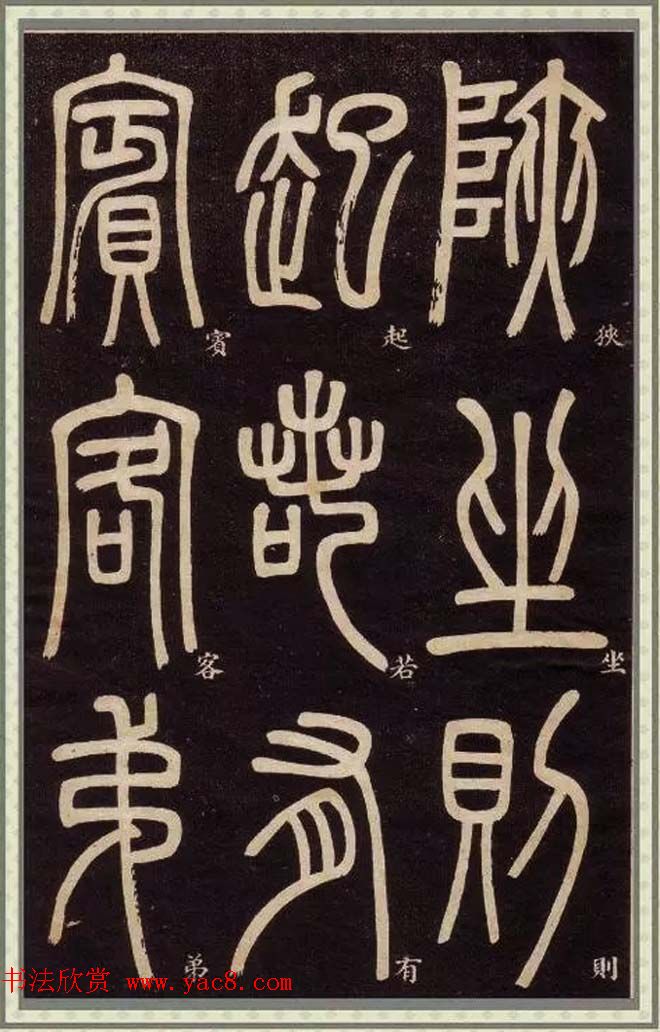 狹坐則
起若有
賓客弟
书法欣赏 www.yac8.com